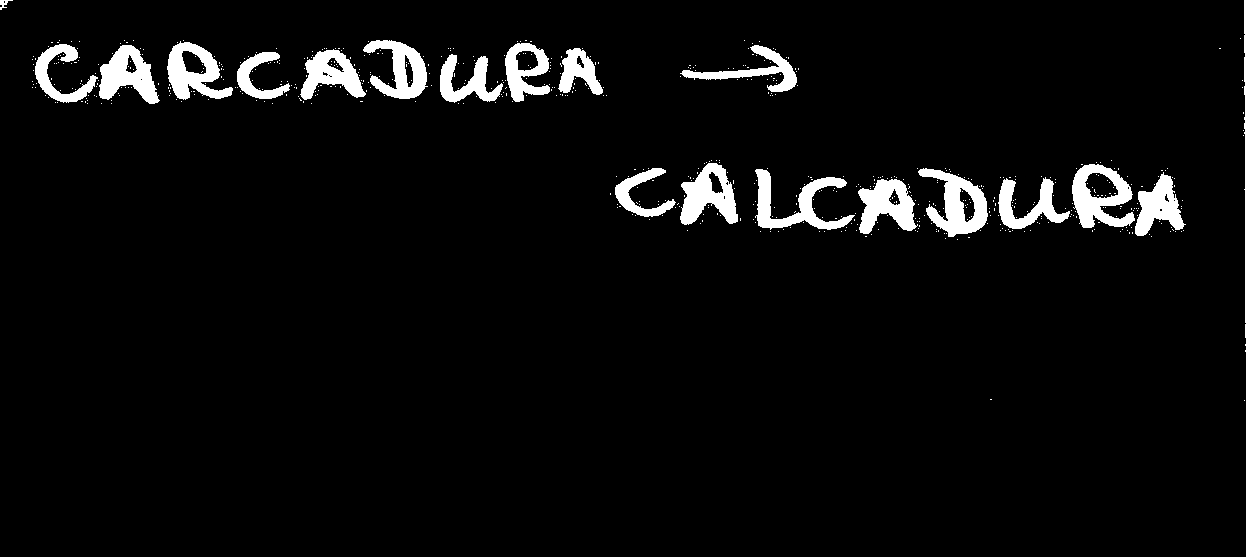 CARCADURA →
CALCADURA